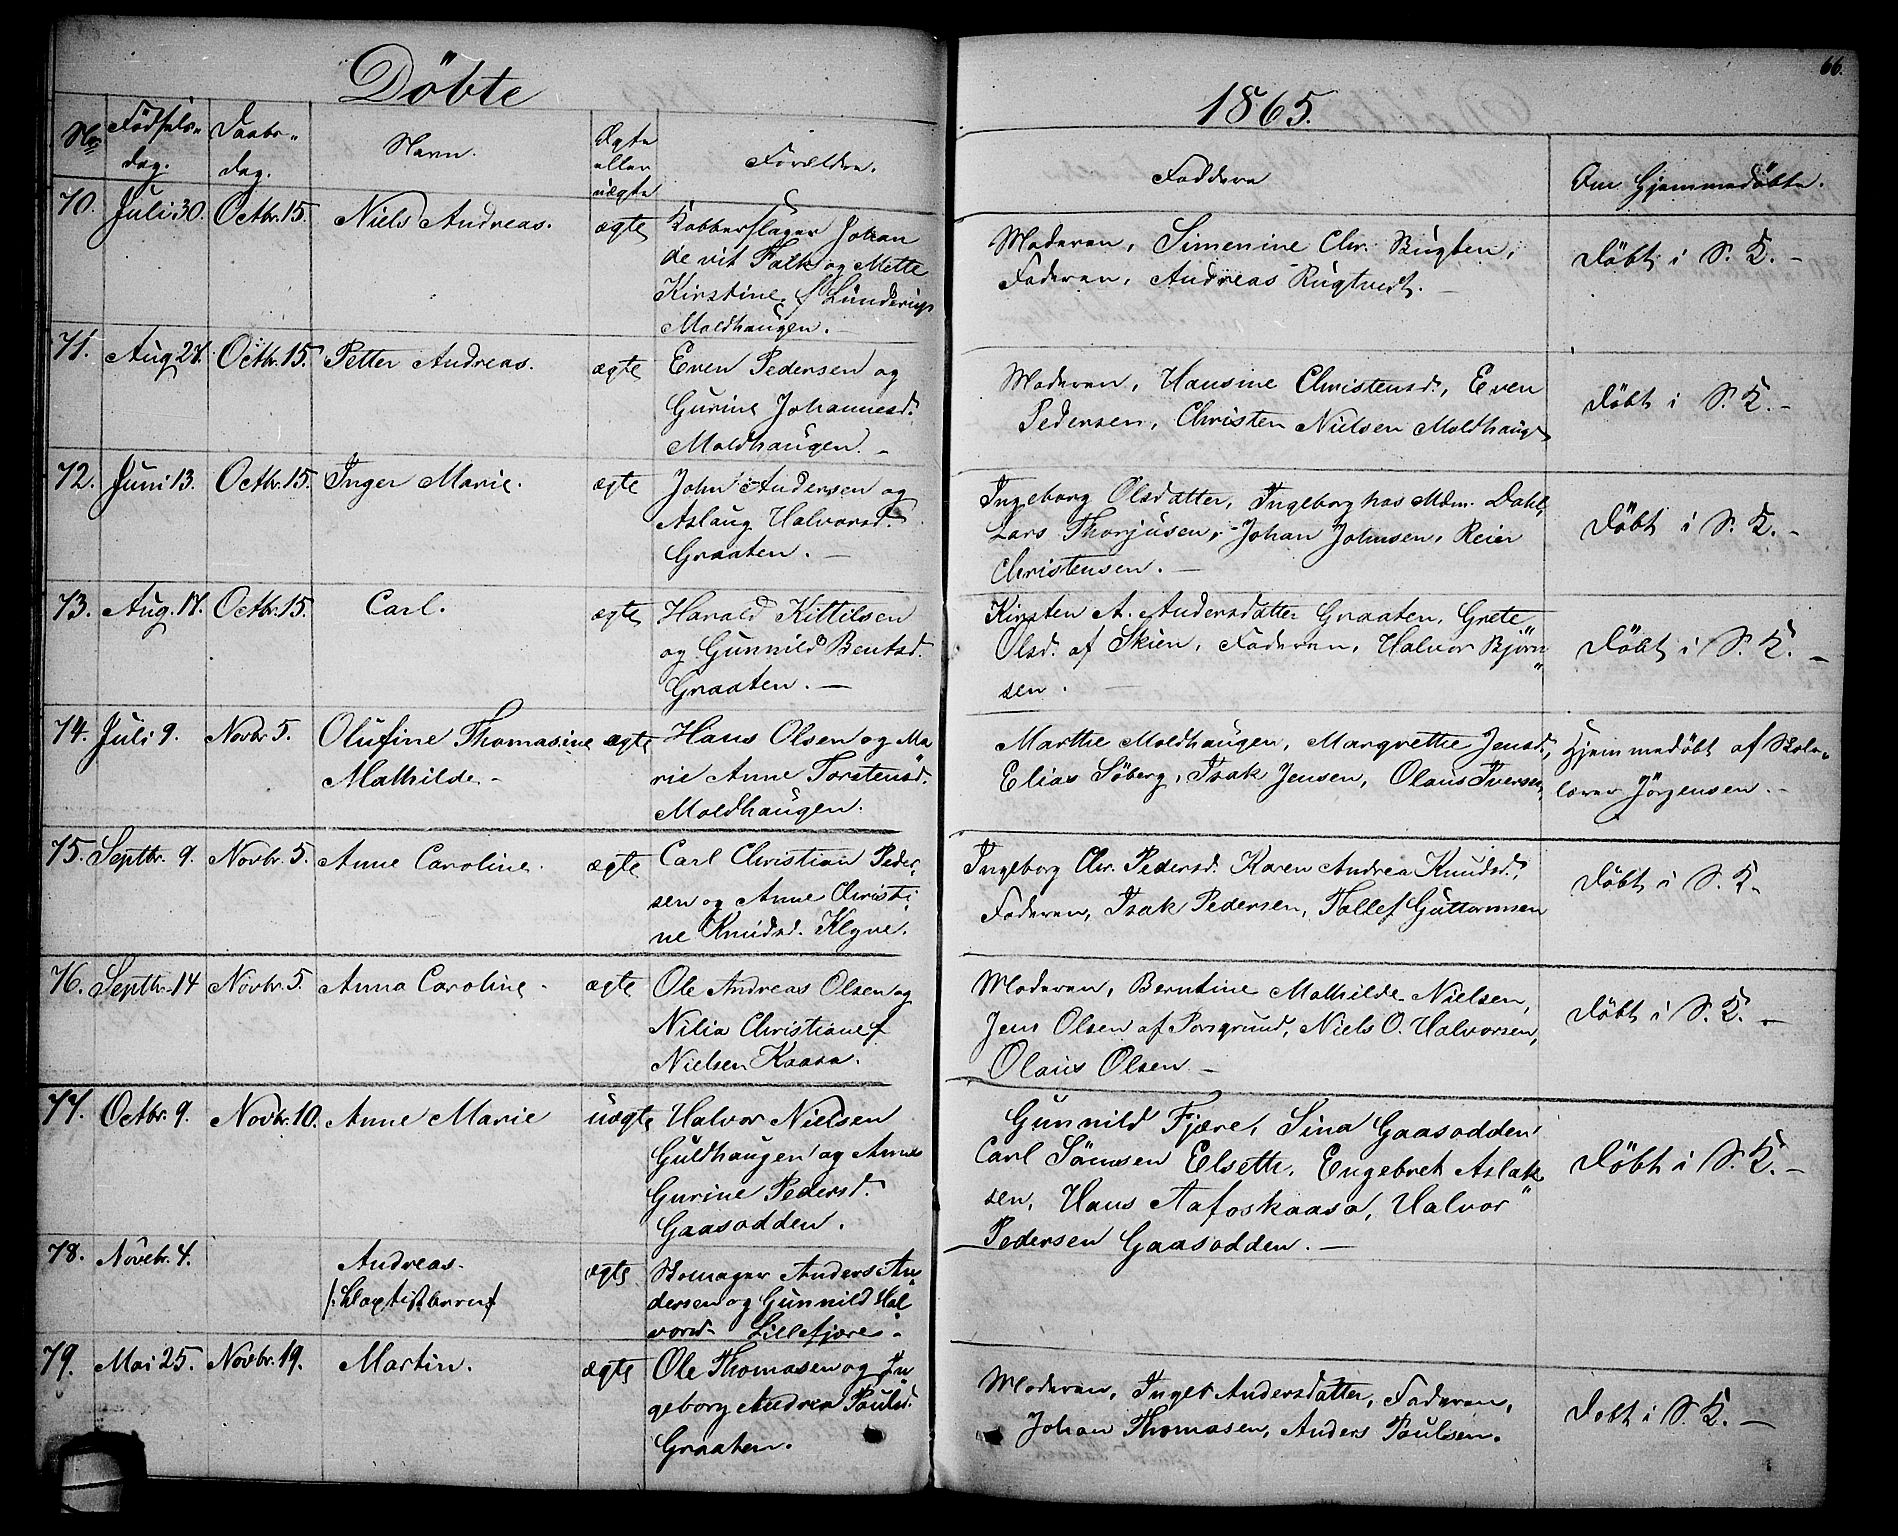 66.
Döbte
1865.
No Födsels- dag. Daabs- dag. Navn. Ægte eller uægte Forældre. Faddere Om Hjemmedöbte.
70. Juli 30. Octbr. 15. Niels Andreas. ægte Kobberslager Johan
de vit Falk og Mette
Kirstine f. Lünderup
Moldhaugen.
Moderen, Simenine Chr. Bugten,
Faderen, Andreas Rugtvedt.
Döbt i S. K. -
71. Aug 27. Octbr. 15. Petter Andreas. ægte Even Pedersen og
Gurine Johannesd.
Moldhaugen. -
Moderen, Hansine Christensd., Even
Pedersen, Christen Nielsen Moldhaug
Döbt i S. K. -
72. Juni 13. Octbr. 15. Inger Marie. ægte John Andersen og
Aslaug Halvorsd.
Graaten. -
Ingeborg Olsdatter, Ingeborg hos Mdm. Dahl,
Lars Thorjusen, Johan Johnsen, Reier
Christensen. -
Döbt i S. K. -
73. Aug. 17. Octbr. 15. Carl. ægte Harald Kittilsen
og Gunnild Bentsd.
Graaten. -
Kirsten A. Andersdatter Graaten, Grete
Olsd. af Skien, Faderen, Halvor Björn-
sen. -
Döbt i S. K. -
74. Juli 9. Novbr 5. Olufine Thomasine ægte Hans Olsen og Ma
Mathilde - rie Anne Torstensd.
Moldhaugen.
Marthe Moldhaugen, Margrethe Jensd.,
Elias Söberg, Isak Jensen, Olaus Iversen,
Hjemmedöbt af Skole-
lærer Jörgensen. -
75. Septbr. 9. Novbr. 5. Anne Caroline. ægte Carl Christian Peder-
sen og Anne Christi-
ne Knudsd. Klyve.
Ingeborg Chr. Pedersd. Karen Andrea Knudsd.,
Faderen, Isak Pedersen, Tollef Guttormsen
Döbt i S. K.
76. Septbr. 14 Novbr. 5. Anna Caroline - ægte Ole Andreas Olsen og
Nilia Christiane f
Nielsen Kaasa.
Moderen, Berntine Mathilde Nielsen,
Jens Olsen af Porsgrund, Niels O. Halvorsen,
Olaus Olsen. -
Döbt i S. K. -
77. Octbr. 9. Novbr. 10. Anne Marie uægte Halvor Nielsen
Guldhaugen og Anne
Gurine Pedersd.
Gaasodden.
Gunnild Fjære, Sina Gaasodden,
Carl Sörensen Elseth, Engebret Aslak-
sen, Hans Aafoskaasa, Halvor
Pedersen Gaasodden. -
Döbt i S. K. -
78. Novebr. 4. Andreas ægte Skomager Anders An-
/: baptistbarn :/ dersen og Gunnild Hal-
vorsd. Lillefjære. -
79. Mai 25. Novbr. 19. Martin. ægte Ole Thomasen og In-
geborg Andrea Paulsd.
Graaten.
Moderen, Inger Andersdatter, Faderen,
Johan Thomasen, Anders Paulsen.
Dobt i S. K. -